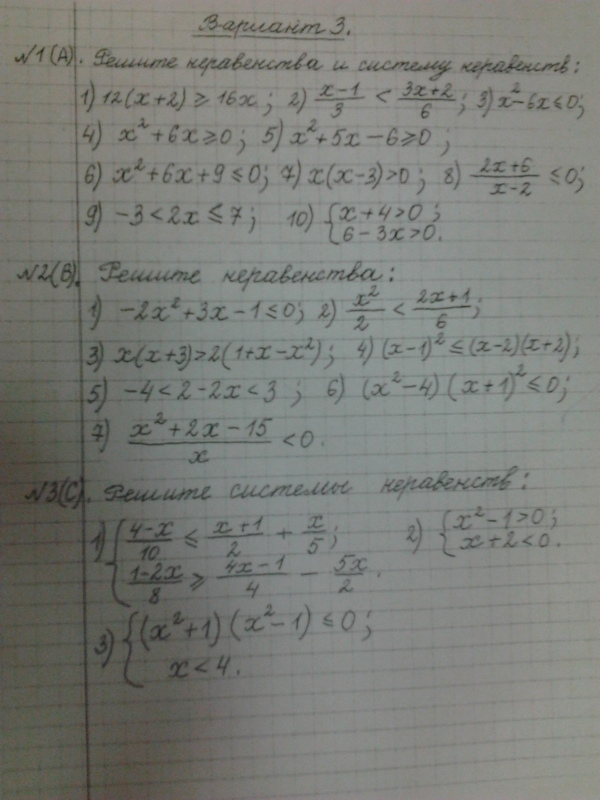 Вариант 3.
№1(А). Решите неравенства и систему неравенств:
1) 12(x+2) ≥ 16x; 2) (x-1)/3 < (3x+2)/6; 3) x²-6x≤0;
4) x²+6x≥0; 5) x²+5x-6≥0;
6) x²+6x+9≤0; 7) x(x-3)>0; 8) (2x+6)/(x-2) ≤0;
9) -3<2x≤7; 10) { x+4>0;
6-3x>0.
№2(В). Решите неравенства:
1) -2x²+3x-1≤0; 2) x²/2 < (2x+1)/6;
3) x(x+3)>2(1+x-x²); 4) (x-1)²≤(x-2)(x+2);
5) -4<2-2x<3; 6) (x²-4)(x+1)²≤0;
7) (x²+2x-15)/x <0.
№3(С). Решите системы неравенств:
1) { (4-x)/10 ≤ (x+1)/2 + x/5; 2) { x²-1>0;
(1-2x)/8 ≥ (4x-1)/4 - 5x/2. x+2<0.
3) { (x²+1)(x²-1)≤0;
x<4.